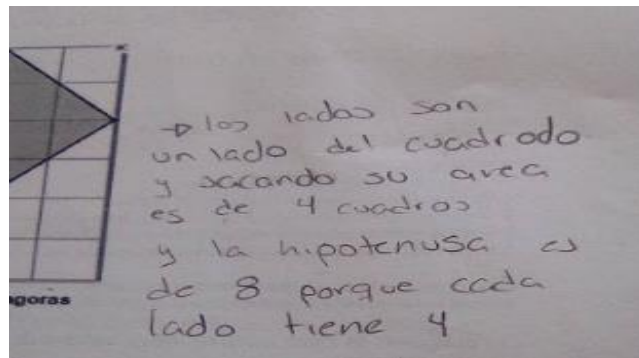 → los lados son
un lado del cuadrodo
y sacando su area
es de 4 cuadros
y la hipotenusa es
de 8 porque cada
lado tiene 4
agoras